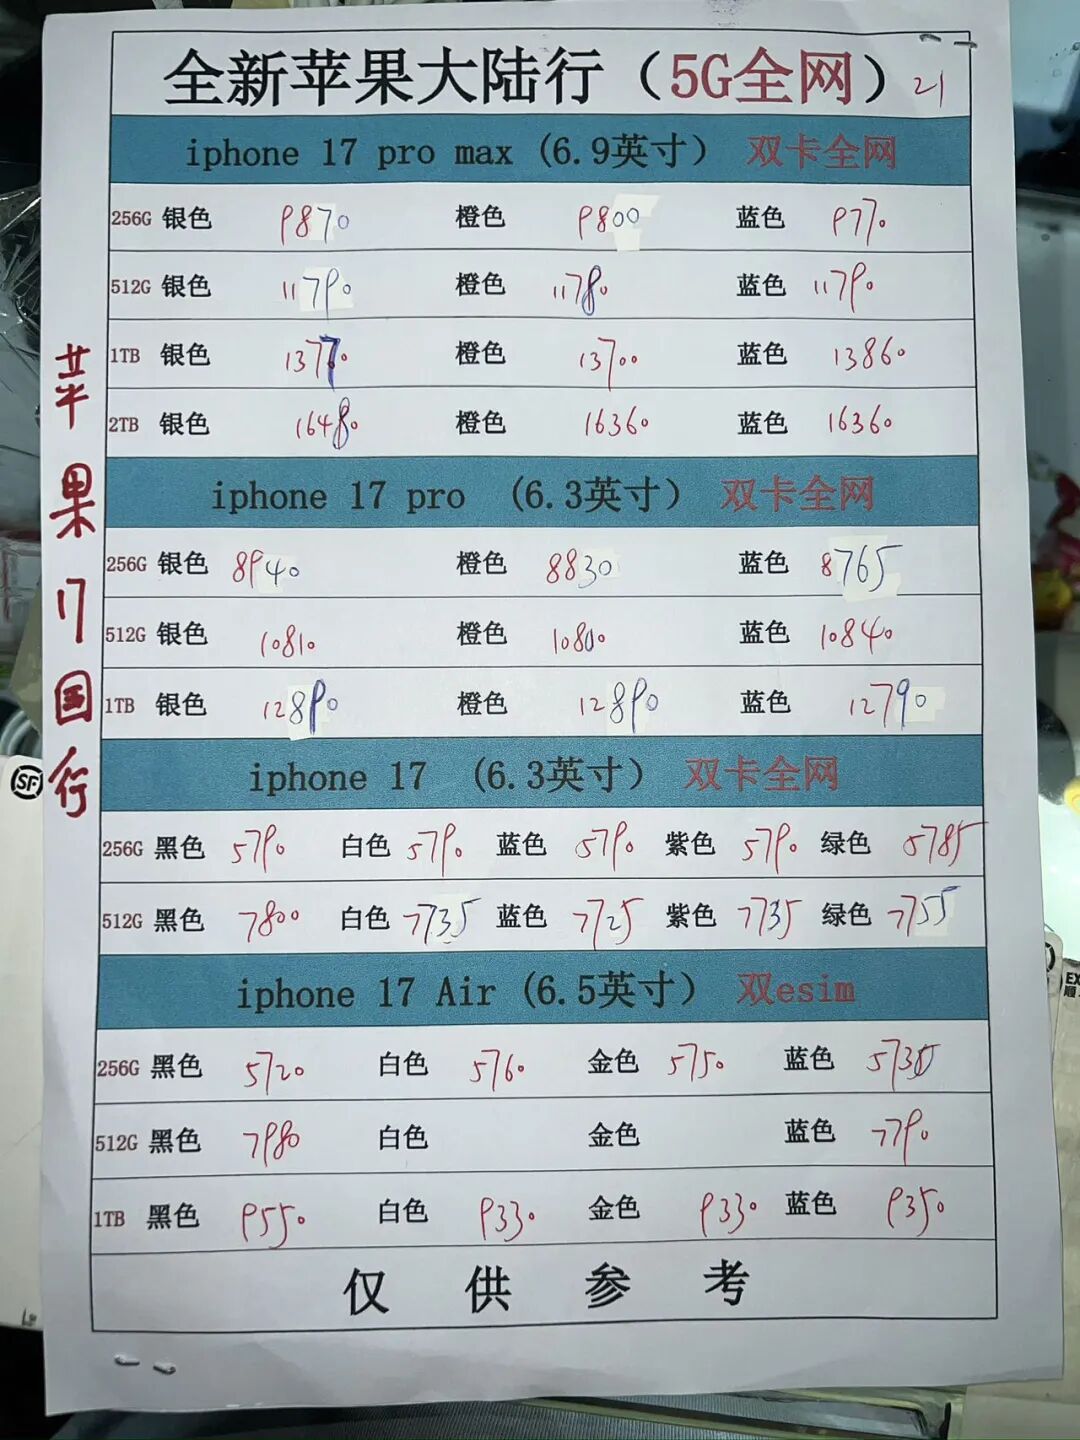 全新苹果大陆行（5G全网）21
iphone 17 pro max (6.9英寸） 双卡全网
256G 银色 9870 橙色 9800 蓝色 9770
512G 银色 11790 橙色 11780 蓝色 11790
1TB 银色 13770 橙色 13700 蓝色 13860
2TB 银色 16480 橙色 16360 蓝色 16360
iphone 17 pro (6.3英寸） 双卡全网
256G 银色 8940 橙色 8830 蓝色 8765
512G 银色 10810 橙色 10800 蓝色 10840
1TB 银色 12890 橙色 12890 蓝色 12790
iphone 17 (6.3英寸） 双卡全网
256G 黑色 5790 白色 5790 蓝色 5790 紫色 5790 绿色 5785
512G 黑色 7800 白色 7735 蓝色 7725 紫色 7735 绿色 7755
iphone 17 Air (6.5英寸） 双esim
256G 黑色 5720 白色 5760 金色 5750 蓝色
512G 黑色 7980 白色 金色 蓝色 7790
1TB 黑色 9550 白色 9330 金色 9330 蓝色 9350
仅供参考
苹果17国行
SF
EX
顺